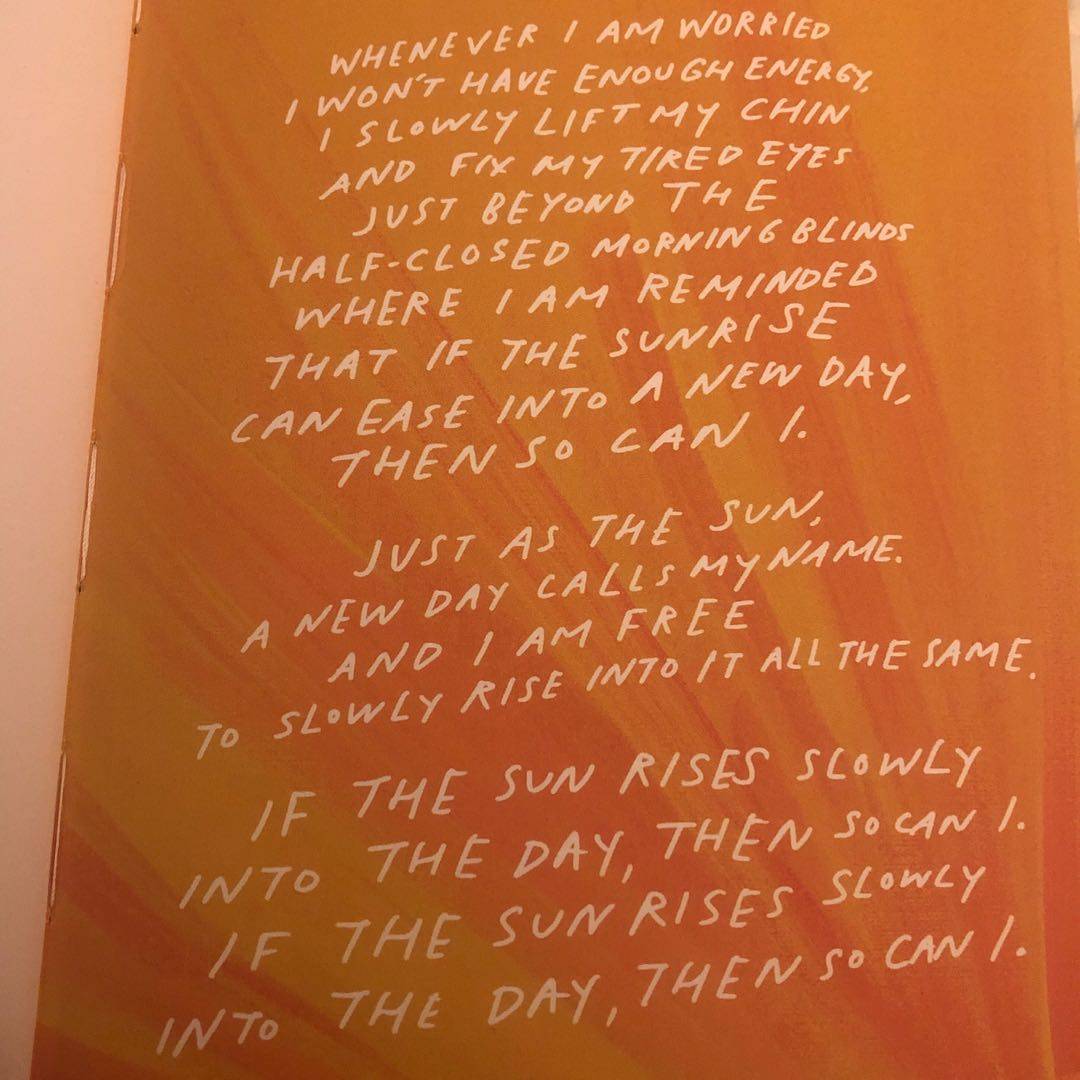 WHENEVER I AM WORRIED
I WON'T HAVE ENOUGH ENERGY,
I SLOWLY LIFT MY CHIN
AND FIX MY TIRED EYES
JUST BEYOND THE
HALF-CLOSED MORNING BLINDS
WHERE I AM REMINDED
THAT IF THE SUNRISE
CAN EASE INTO A NEW DAY,
THEN SO CAN I.
JUST AS THE SUN,
A NEW DAY CALLS MY NAME.
AND I AM FREE
TO SLOWLY RISE INTO IT ALL THE SAME.
IF THE SUN RISES SLOWLY
INTO THE DAY, THEN SO CAN I.
IF THE SUN RISES SLOWLY
INTO THE DAY, THEN SO CAN I.